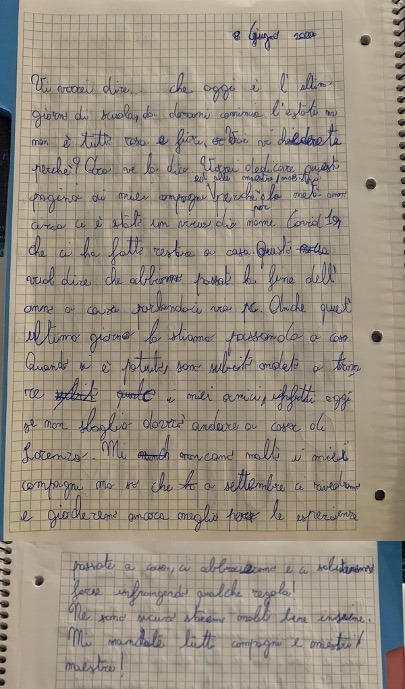 8 Giugno 2020
Vi vorrei dire... che oggi è l'ultimo
giorno di scuola, da domani comincia l'estate ma
non è tutto rosa e fiori, voi vi chiederete
perché? Ora ve lo dico. Vorrei dedicare questa
ed alle maestre/maestri
pagina ai miei compagni perché a metà anno
per
circa c'è stato un virus di nome Covid 19
che ci ha fatto restare a casa. Questo
vuol dire che abbiamo passato la fine dell'
anno a casa parlandoci via PC. Anche quest'
ultimo giorno lo stiamo passando a casa.
Quando si è potuto sono subito andato a trova
re i miei amici, infatti oggi
se non sbaglio dovrei andare a casa di
Lorenzo. Mi mancano molto i miei
compagni ma so che a settembre ci rivedremo
e giocheremo ancora meglio le esperienze
passate a casa, ci abbracceremo e ci saluteremo
forse infrangendo qualche regola!
Ne sono sicuro staremo molto bene insieme.
Mi mancate tutti compagni e maestri/
maestre!